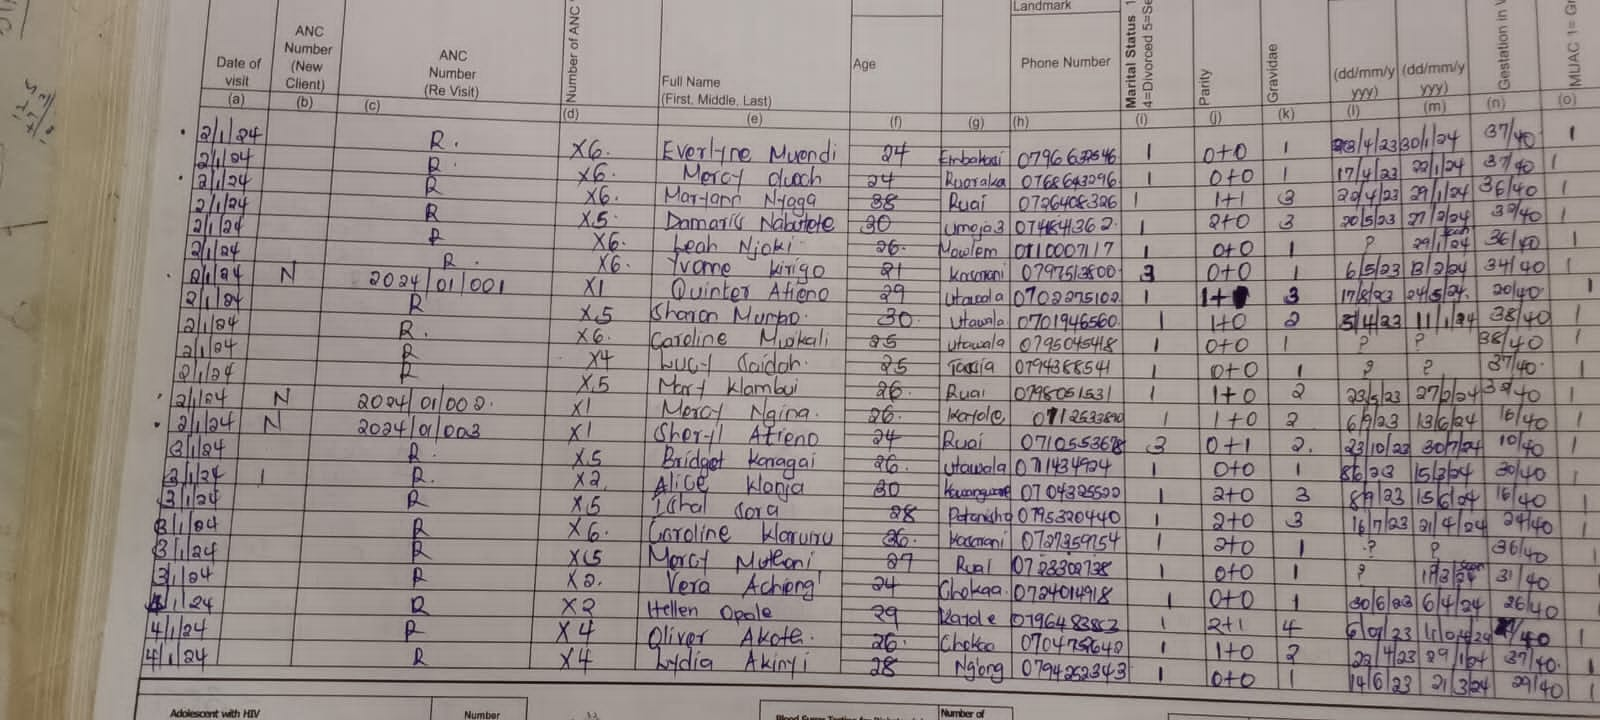 Landmark
Date of visit (a) ANC Number (New Client) (b) ANC Number (Re Visit) (c) Number of ANC (d) Full Name (First, Middle, Last) (e) Age (f) (g) Phone Number (h) Marital Status 4=Divorced (i) Parity (j) Gravidae (k) (dd/mm/yyy) (l) (dd/mm/yyy) (m) Gestation in (n) MUAC 1= (o)
2/1/24 R. X6. Everlyne Muendi 24 Embakasi 1 0+0 1 30/1/24 37/40 1
2/1/24 R. X6. Mercy Oluoch 24 Ruaraka 0768643296 1 0+0 1 17/4/23 22/1/24 37/40 1
2/1/24 R X6. Maryann Nyaga 38 Ruai 0726408326 1 1+1 3 29/1/24 36/40 1
2/1/24 R X5. Damaris 30 Umoja3 1 2+0 3 20/5/23 27/2/24 1
2/1/24 R X6. Leah Njoki 26. Mowlem 0110007117 1 0+0 1 ? 29/1/24 36/40 1
2/1/24 R. X6. Yvonne Kirigo 21 Kasarani 0797513800 3 0+0 1 6/5/23 13/2/24 34/40 1
2/1/24 N 2024/01/001 X1 Quinter Atieno 29 Utawala 0702275102 1 3 17/8/23 24/5/24. 20/40 1
2/1/24 R X5 Sharon Mumbo. 30. Utawala 0701946560 1 1+0 2 11/1/24 38/40 1
2/1/24 R. X6. Caroline 25 Utawala 0795045418 1 0+0 1 ? ? 38/40 1
2/1/24 R X4 Lucy Saidah. 25 Tassia 0794388541 1 0+0 1 ? ? 37/40. 1
2/1/24 R X5 Mary Wambui 26. Ruai 0798051531 1 1+0 2 23/5/23 27/2/24 1
2/1/24 N 2024/01/002. X1 Mercy Ngina. 26. Kayole. 1 1+0 2 6/9/23 13/6/24 16/40 1
2/1/24 N 2024/01/003 X1 Sheryl Atieno 24 Ruai 3 0+1 2. 23/10/23 30/7/24 10/40 1
3/1/24 R. X5 Bridget Karagai 26. Utawala 1 0+0 1 15/3/24 30/40 1
3/1/24 1 R. X2. Alice Wanja 30 Kawangware 0704325500 1 2+0 3 8/9/23 15/6/24 16/40 1
3/1/24 R X5 28 0795320440 1 2+0 3 16/7/23 21/4/24 24/40 1
3/1/24 R X6. Caroline Waruiru 26. Kasarani 0727359754 1 2+0 1 ? ? 36/40 1
3/1/24 R X5 Mercy Mutheni 27 Ruai 0723302738 1 0+0 1 ? 31/40 1
3/1/24 R X2. Vera Achieng' 24 Chokaa. 0724014918 1 0+0 1 30/6/23 6/4/24 26/40 1
4/1/24 R X2 Hellen Opole 29 Kayole 1 2+1 4 1
4/1/24 R X4 Oliver Akoth. 26. Chokaa 1 1+0 2 22/4/23 29/1/24 37/40. 1
4/1/24 R X4 Lydia Akinyi 28 Ngong 0794252343 1 0+0 1 14/6/23 21/3/24 29/40 1
Adolescent with HIV Number Number of